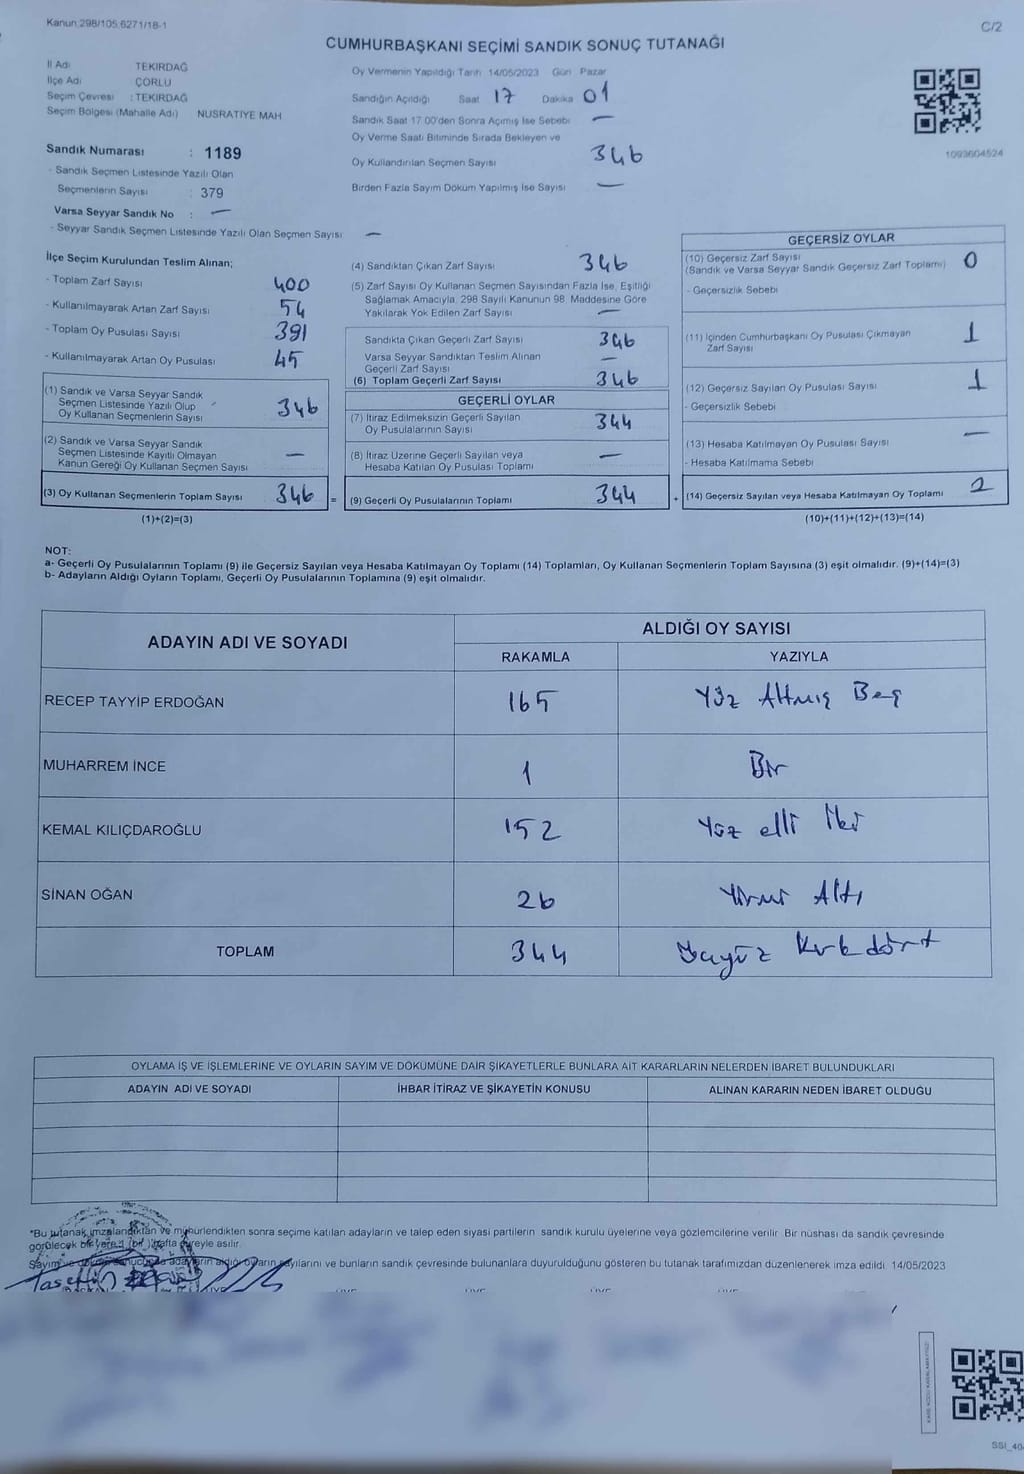 Kanun 298/105,6271/18-1
C/2
CUMHURBAŞKANI SEÇİMİ SANDIK SONUÇ TUTANAĞI
İl Adı TEKİRDAĞ
İlçe Adı ÇORLU
Seçim Çevresi : TEKİRDAĞ
Seçim Bölgesi (Mahalle Adı) NUSRATİYE MAH
Sandık Numarası : 1189
- Sandık Seçmen Listesinde Yazılı Olan
Seçmenlerin Sayısı : 379
Varsa Seyyar Sandık No : —
- Seyyar Sandık Seçmen Listesinde Yazılı Olan Seçmen Sayısı —
Oy Vermenin Yapıldığı Tarih 14/05/2023 Gün Pazar
Sandığın Açıldığı Saat 17 Dakika 01
Sandık Saat 17.00'den Sonra Açılmış İse Sebebi —
Oy Verme Saati Bitiminde Sırada Bekleyen ve
Oy Kullandırılan Seçmen Sayısı 346
Birden Fazla Sayım Döküm Yapılmış İse Sayısı —
1093604524
İlçe Seçim Kurulundan Teslim Alınan;
- Toplam Zarf Sayısı 400
- Kullanılmayarak Artan Zarf Sayısı 54
- Toplam Oy Pusulası Sayısı 391
- Kullanılmayarak Artan Oy Pusulası 45
(1) Sandık ve Varsa Seyyar Sandık
Seçmen Listesinde Yazılı Olup
Oy Kullanan Seçmenlerin Sayısı 346
(2) Sandık ve Varsa Seyyar Sandık
Seçmen Listesinde Kayıtlı Olmayan
Kanun Gereği Oy Kullanan Seçmen Sayısı —
(3) Oy Kullanan Seçmenlerin Toplam Sayısı 346 =
(1)+(2)=(3)
(4) Sandıktan Çıkan Zarf Sayısı 346
(5) Zarf Sayısı Oy Kullanan Seçmen Sayısından Fazla İse, Eşitliği
Sağlamak Amacıyla, 298 Sayılı Kanunun 98. Maddesine Göre
Yakılarak Yok Edilen Zarf Sayısı —
Sandıkta Çıkan Geçerli Zarf Sayısı 346
Varsa Seyyar Sandıktan Teslim Alınan
Geçerli Zarf Sayısı —
(6) Toplam Geçerli Zarf Sayısı 346
GEÇERLİ OYLAR
(7) İtiraz Edilmeksizin Geçerli Sayılan
Oy Pusulalarının Sayısı 344
(8) İtiraz Üzerine Geçerli Sayılan veya
Hesaba Katılan Oy Pusulası Toplamı —
(9) Geçerli Oy Pusulalarının Toplamı 344 +
GEÇERSİZ OYLAR
(10) Geçersiz Zarf Sayısı
(Sandık ve Varsa Seyyar Sandık Geçersiz Zarf Toplamı) 0
- Geçersizlik Sebebi
(11) İçinden Cumhurbaşkanı Oy Pusulası Çıkmayan
Zarf Sayısı 1
(12) Geçersiz Sayılan Oy Pusulası Sayısı 1
- Geçersizlik Sebebi
(13) Hesaba Katılmayan Oy Pusulası Sayısı —
- Hesaba Katılmama Sebebi
(14) Geçersiz Sayılan veya Hesaba Katılmayan Oy Toplamı 2
(10)+(11)+(12)+(13)=(14)
NOT:
a- Geçerli Oy Pusulalarının Toplamı (9) ile Geçersiz Sayılan veya Hesaba Katılmayan Oy Toplamı (14) Toplamları, Oy Kullanan Seçmenlerin Toplam Sayısına (3) eşit olmalıdır. (9)+(14)=(3)
b- Adayların Aldığı Oyların Toplamı, Geçerli Oy Pusulalarının Toplamına (9) eşit olmalıdır.
ADAYIN ADI VE SOYADI ALDIĞI OY SAYISI
RAKAMLA YAZIYLA
RECEP TAYYİP ERDOĞAN 165 Yüz Altmış Beş
MUHARREM İNCE 1 Bir
KEMAL KILIÇDAROĞLU 152 Yüz elli İki
SİNAN OĞAN 26 Yirmi Altı
TOPLAM 344 Üçyüz Kırkdört
OYLAMA İŞ VE İŞLEMLERİNE VE OYLARIN SAYIM VE DÖKÜMÜNE DAİR ŞİKAYETLERLE BUNLARA AİT KARARLARIN NELERDEN İBARET BULUNDUKLARI
ADAYIN ADI VE SOYADI İHBAR İTİRAZ VE ŞİKAYETİN KONUSU ALINAN KARARIN NEDEN İBARET OLDUĞU
*Bu tutanak imzalandıktan ve mühürlendikten sonra seçime katılan adayların ve talep eden siyasi partilerin sandık kurulu üyelerine veya gözlemcilerine verilir. Bir nüshası da sandık çevresinde
görülecek bir yere 1 (bir) hafta süreyle asılır.
Sayım ve döküm sonucunda adayların aldığı oyların sayılarını ve bunların sandık çevresinde bulunanlara duyurulduğunu gösteren bu tutanak tarafımızdan düzenlenerek imza edildi. 14/05/2023